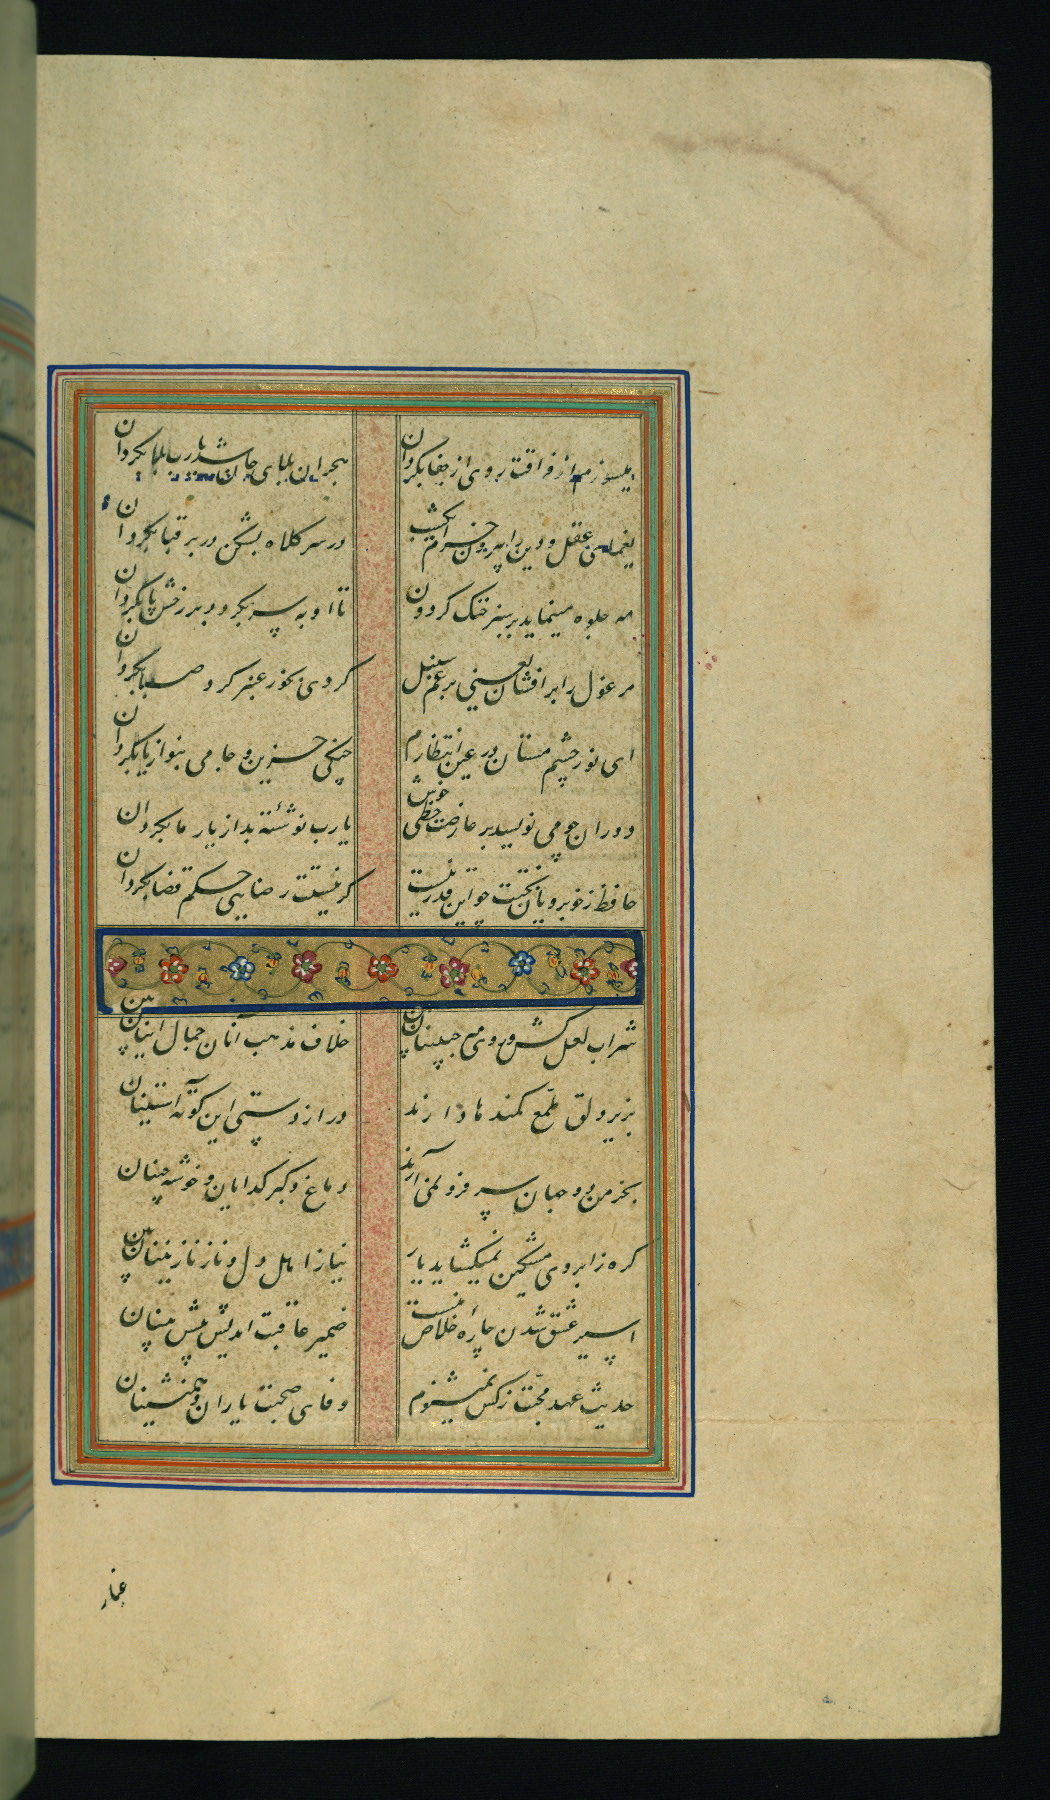 میسوزم از فراقت روی از جفا بگردان هجران بلای جان شد یارب بلا بگردان
یغمای عقل و دین را بیرون خرام امشب در سر کلاه بشکن در بر قبا بگردان
مه جلوه مینماید بر سبز خنگ گردون تا او به سر بگردد بر رخش پا بگردان
مرغول را برافشان یعنی برغم سنبل گرد بخور عنبر گرد صبا بگردان
ای نور چشم مستان در عین انتظارم چنگی حزین و جامی بنواز یا بگردان
دوران چو می نویسد بر عارضت خطی خوش یارب نوشته بد از یار ما بگردان
حافظ ز خوبرویان بختت جز این قدر نیست گر نیستت رضایی حکم قضا بگردان
شراب لعل کش و روی مه جبینان بین خلاف مذهب آنان جمال اینان بین
بزیر دلق ملمع کمندها دارند دراز دستی این کوته آستینان بین
بخرمن دو جهان سر فرو نمی آرند دماغ و کبر گدایان و خوشه چینان
گره ز ابروی مشکین نمیگشاید یار نیاز اهل دل و ناز نازنینان بین
اسیر عشق شدن چاره خلاص منست ضمیر عاقبت اندیش پیش بینان
حدیث عهد محبت ز کس نمیشنوم وفای صحبت یاران و همنشینان
غبار